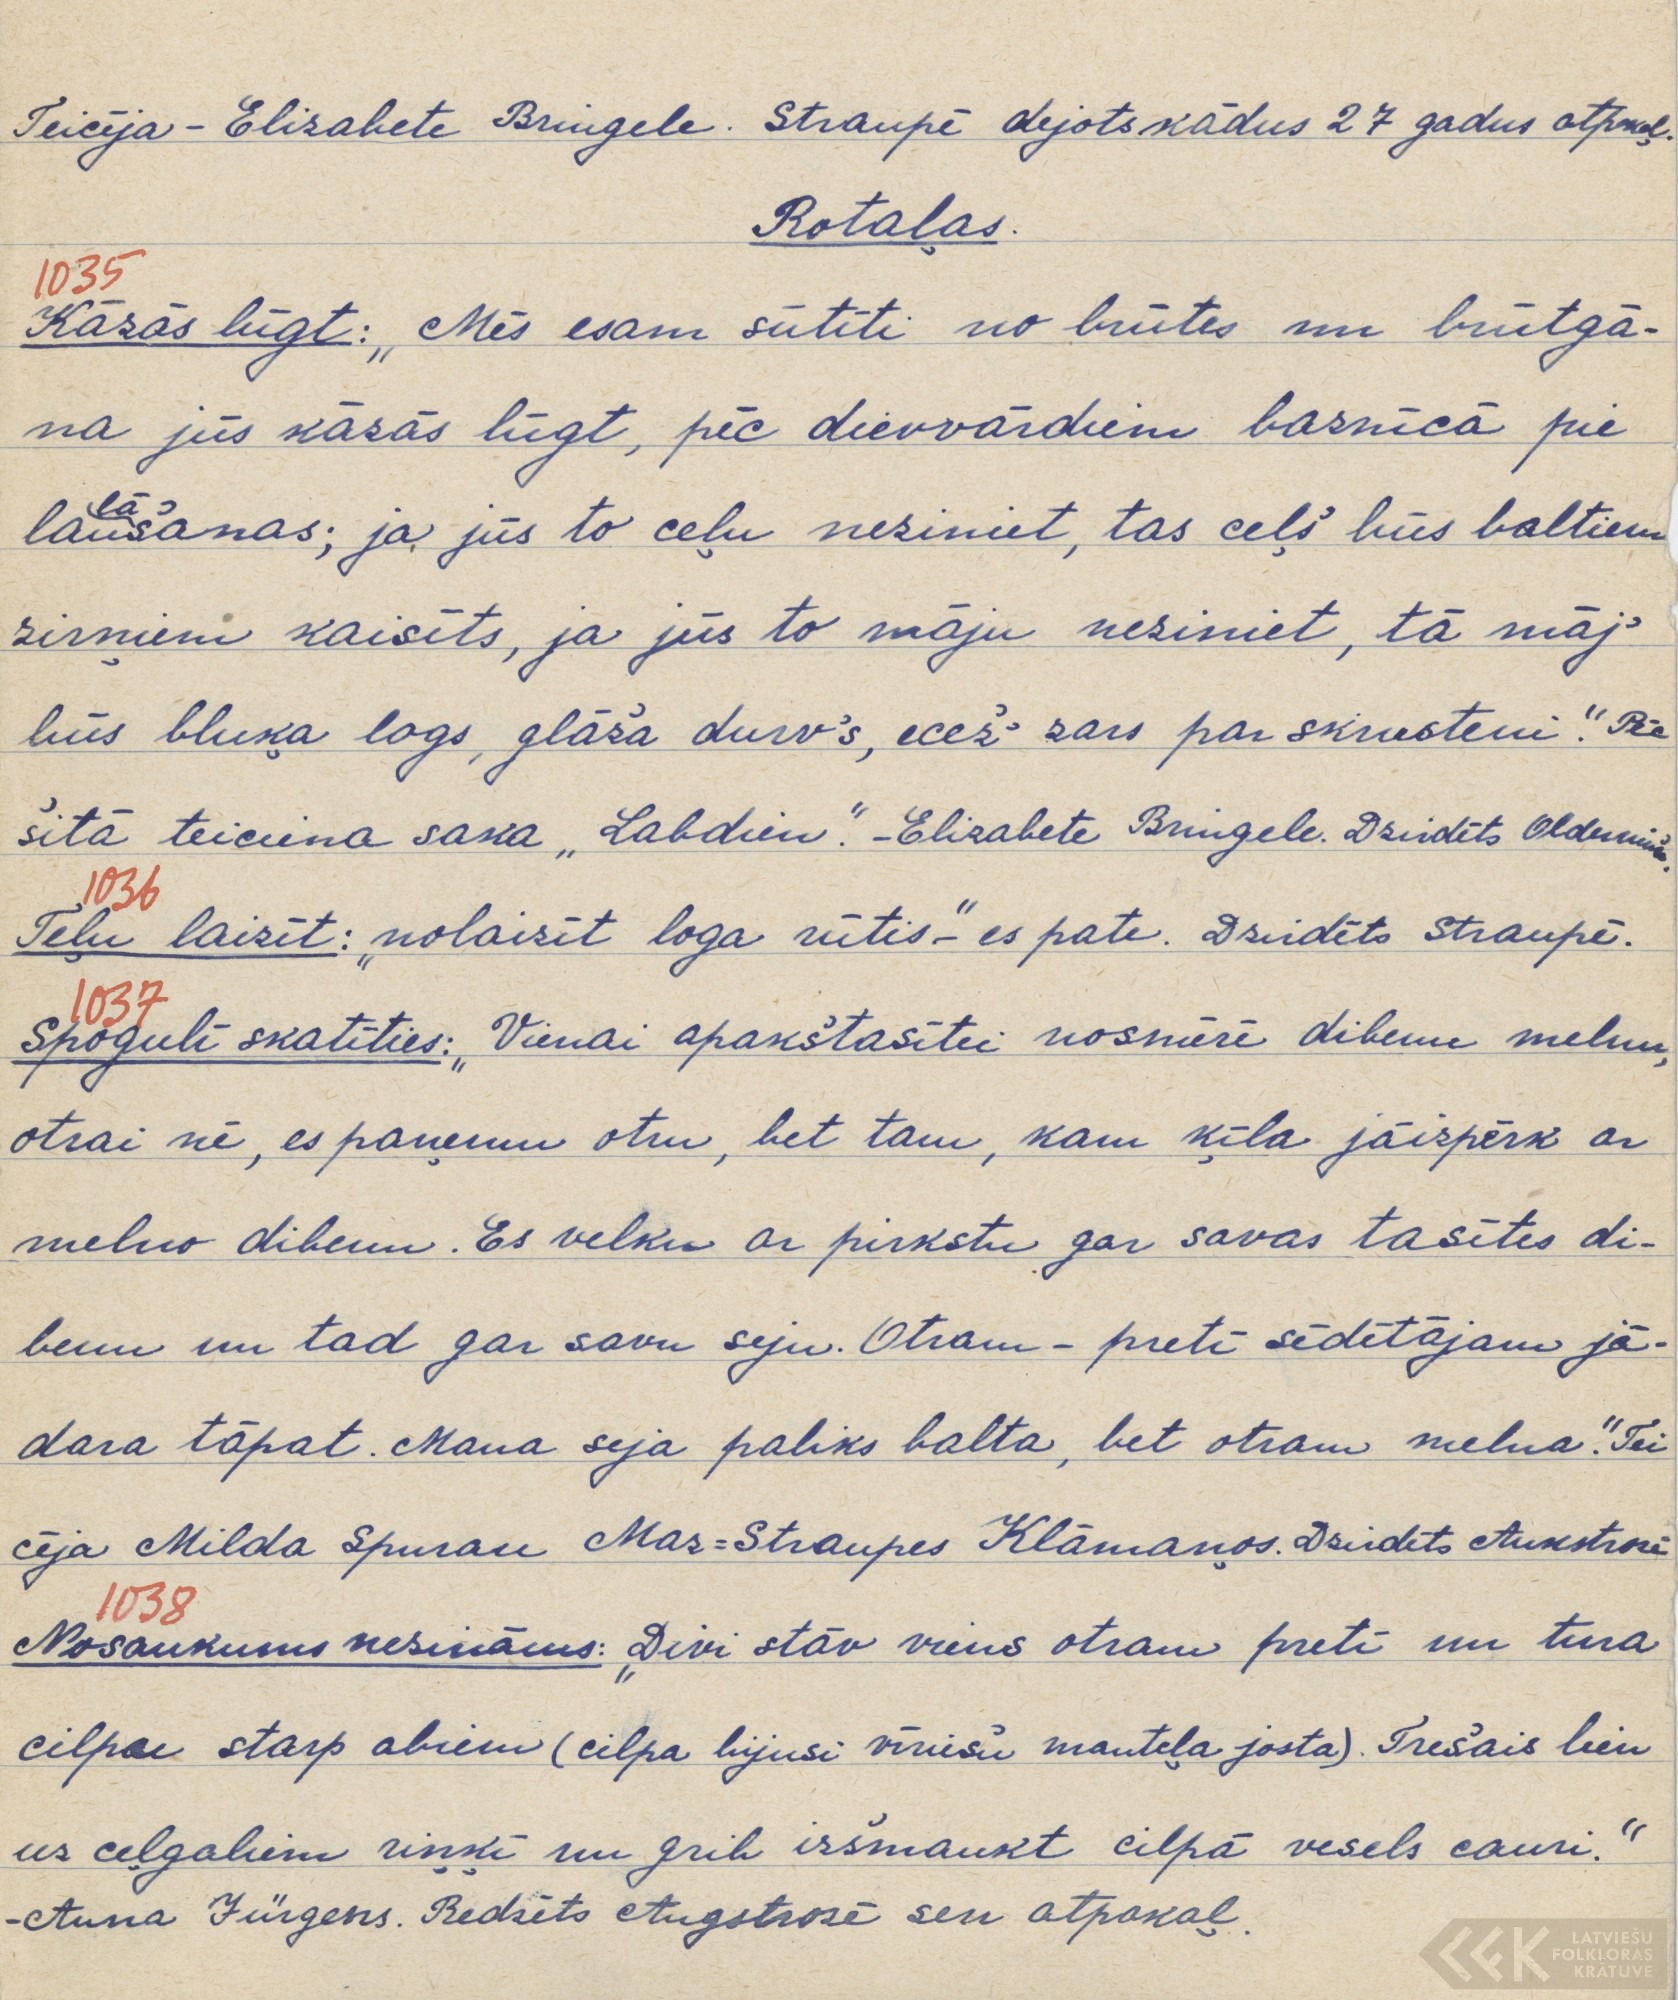 Teicēja - Elizabete Bringele. Straupē dejots kādus 27 gadus atpakaļ.
Rotaļas.
1035
Kāzās lūgt: „Mēs esam sūtīti no brūtes un brūtgā-
na jūs kāzās lūgt, pēc dievvārdiem baznīcā pie
lā
laušanas; ja jūs to ceļu neziniet, tas ceļš būs baltiem
zirņiem kaisīts, ja jūs to māju neziniet, tā māj'
būs bluķa logs, glāža durv's, ecež' zars par skrusteni." Pēc
šitā teiciena saka „Labdien". - Elizabete Bringele. Dzirdēts
1036
Teļu laizīt: „nolaizīt loga rūtis" - es pate. Dzirdēts Straupē.
1037
Spogulī skatīties: „Vienai apakštasītei nosmērē dibenu melnu,
otrai nē, es paņemu otru, bet tam, kam ķīla jāizpērk ar
melno dibenu. Es velku ar pirkstu gar savas tasītes di-
benu un tad gar savu seju. Otram - pretī sēdētājam jā-
dara tāpat. Mana seja paliks balta, bet otram melna." Tei
cēja Milda Spurau Maz=Straupes Klāmaņos. Dzirdēts Aukstrozē
1038
Nosaukums nezināms: „Divi stāv viens otram pretī un tura
cilpu starp abiem (cilpa bijusi vīriešu manteļa josta). Trešais lien
uz ceļgaliem riņķī un grib izšmaukt cilpā vesels cauri."
- Anna Jürgens. Redzēts Augstrozē sen atpakaļ.
LATVIEŠU
FOLKLORAS
KRĀTUVE